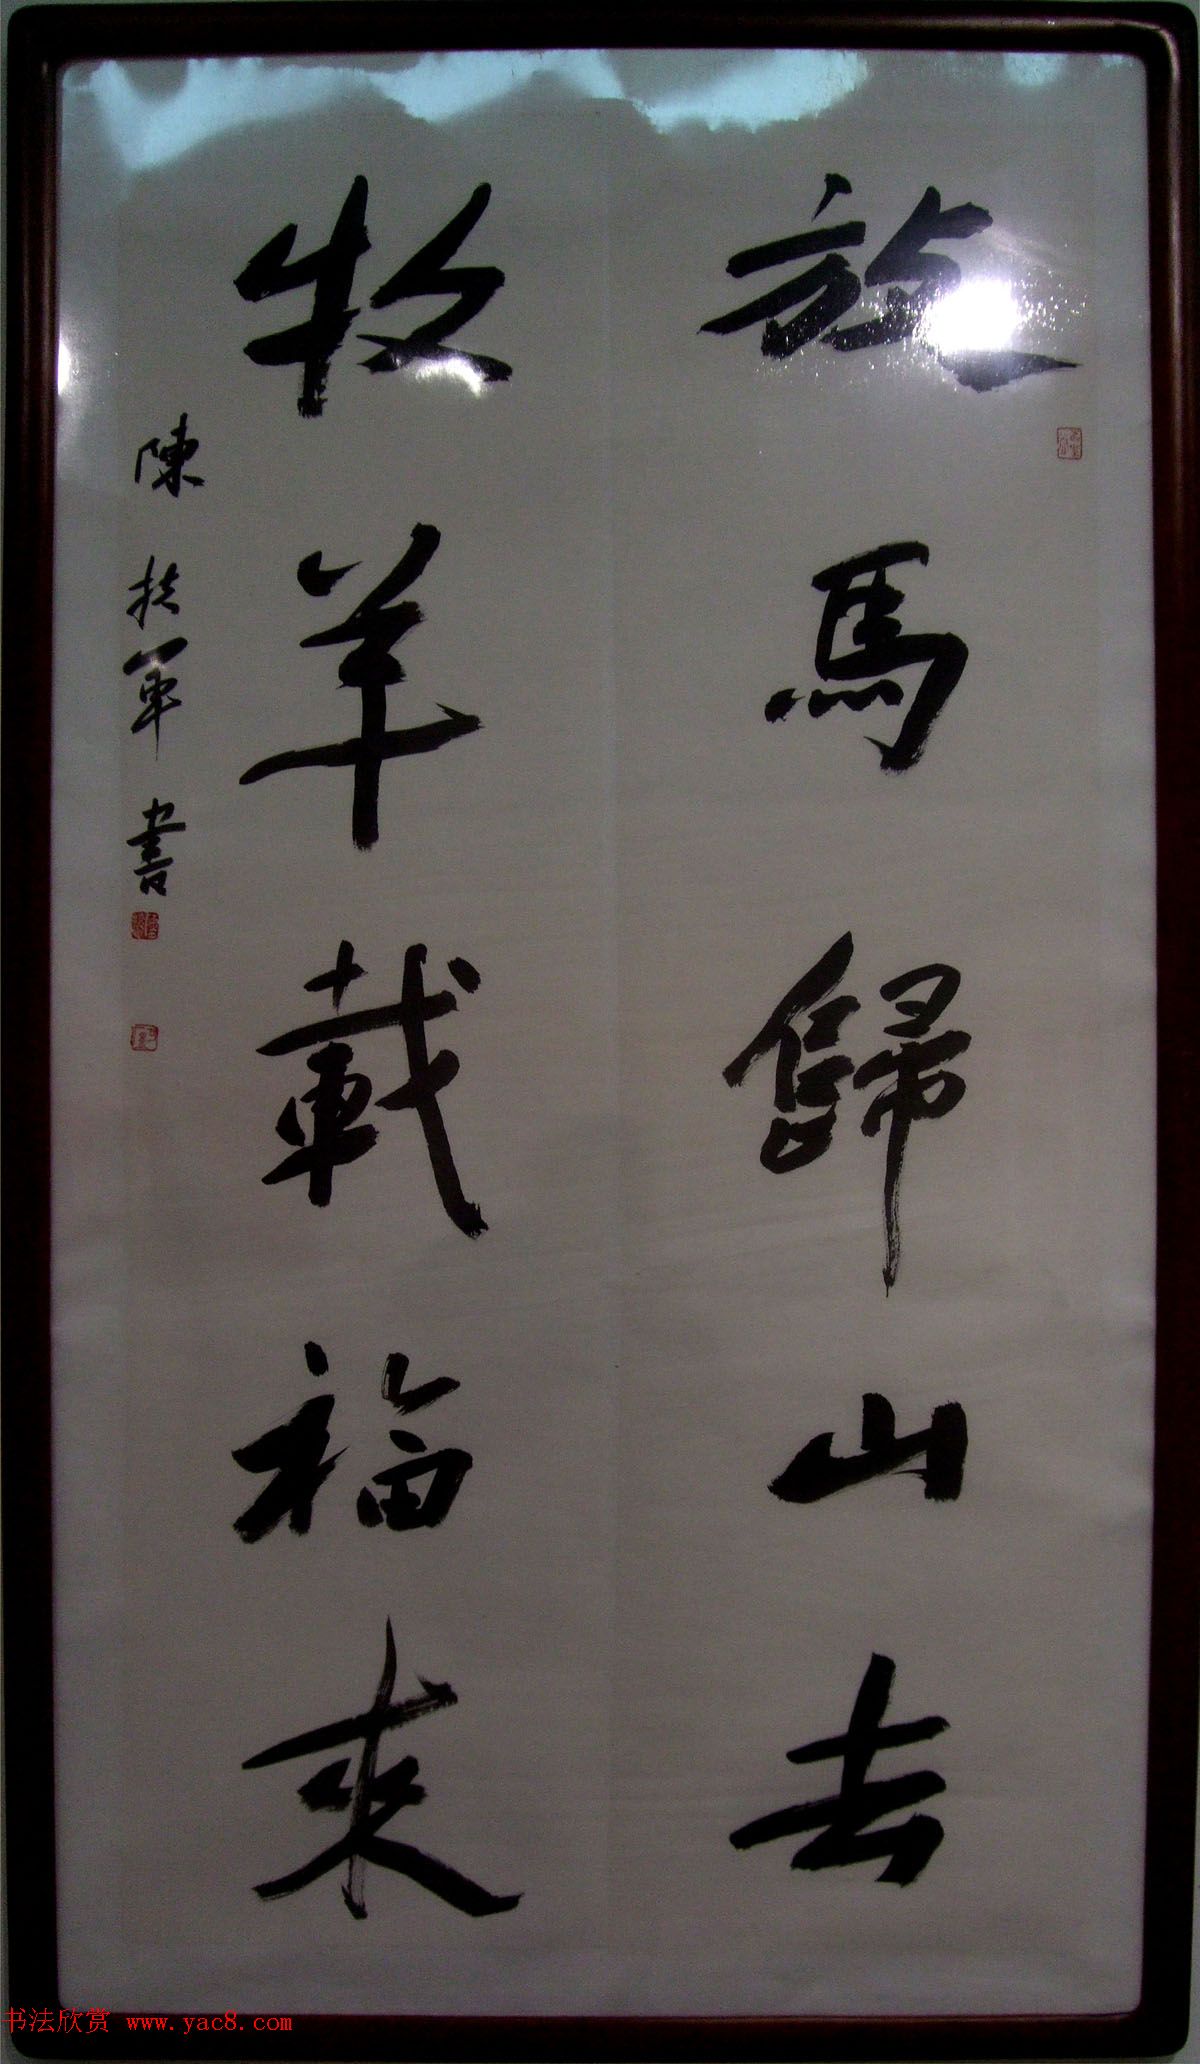 放馬歸山去
牧羊載福來
陳扶軍書
书法欣赏 www.yac8.com